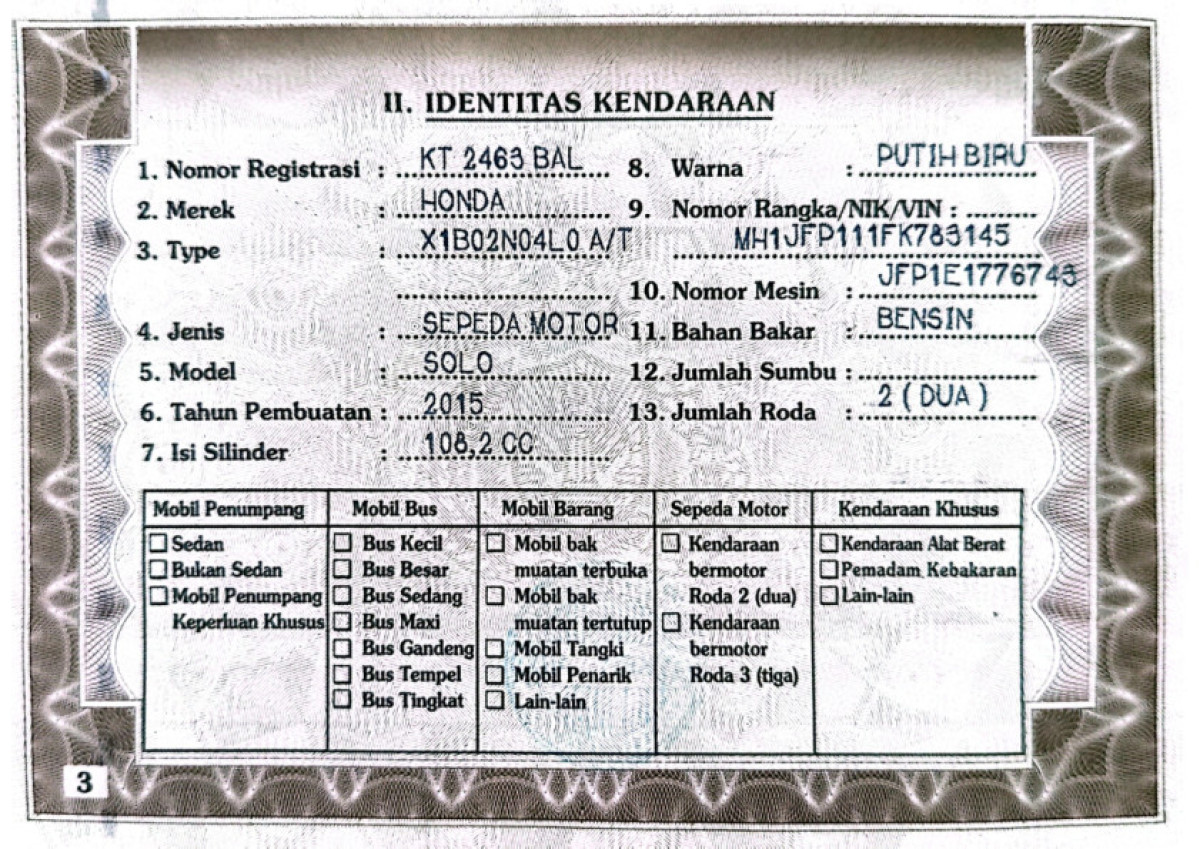 II. IDENTITAS KENDARAAN
1. Nomor Registrasi : KT 2463 BAL
2. Merek : HONDA
3. Type : X1B02N04L0 A/T
4. Jenis : SEPEDA MOTOR
5. Model : SOLO
6. Tahun Pembuatan : 2015
7. Isi Silinder : 108,2 CC
8. Warna : PUTIH BIRU
9. Nomor Rangka/NIK/VIN :
MH1JFP111FK783145
10. Nomor Mesin : JFP1E1776743
11. Bahan Bakar : BENSIN
12. Jumlah Sumbu :
13. Jumlah Roda : 2 ( DUA )
Mobil Penumpang
Sedan
Bukan Sedan
Mobil Penumpang
Keperluan Khusus
Mobil Bus
Bus Kecil
Bus Besar
Bus Sedang
Bus Maxi
Bus Gandeng
Bus Tempel
Bus Tingkat
Mobil Barang
Mobil bak
muatan terbuka
Mobil bak
muatan tertutup
Mobil Tangki
Mobil Penarik
Lain-lain
Sepeda Motor
Kendaraan
bermotor
Roda 2 (dua)
Kendaraan
bermotor
Roda 3 (tiga)
Kendaraan Khusus
Kendaraan Alat Berat
Pemadam Kebakaran
Lain-lain
3